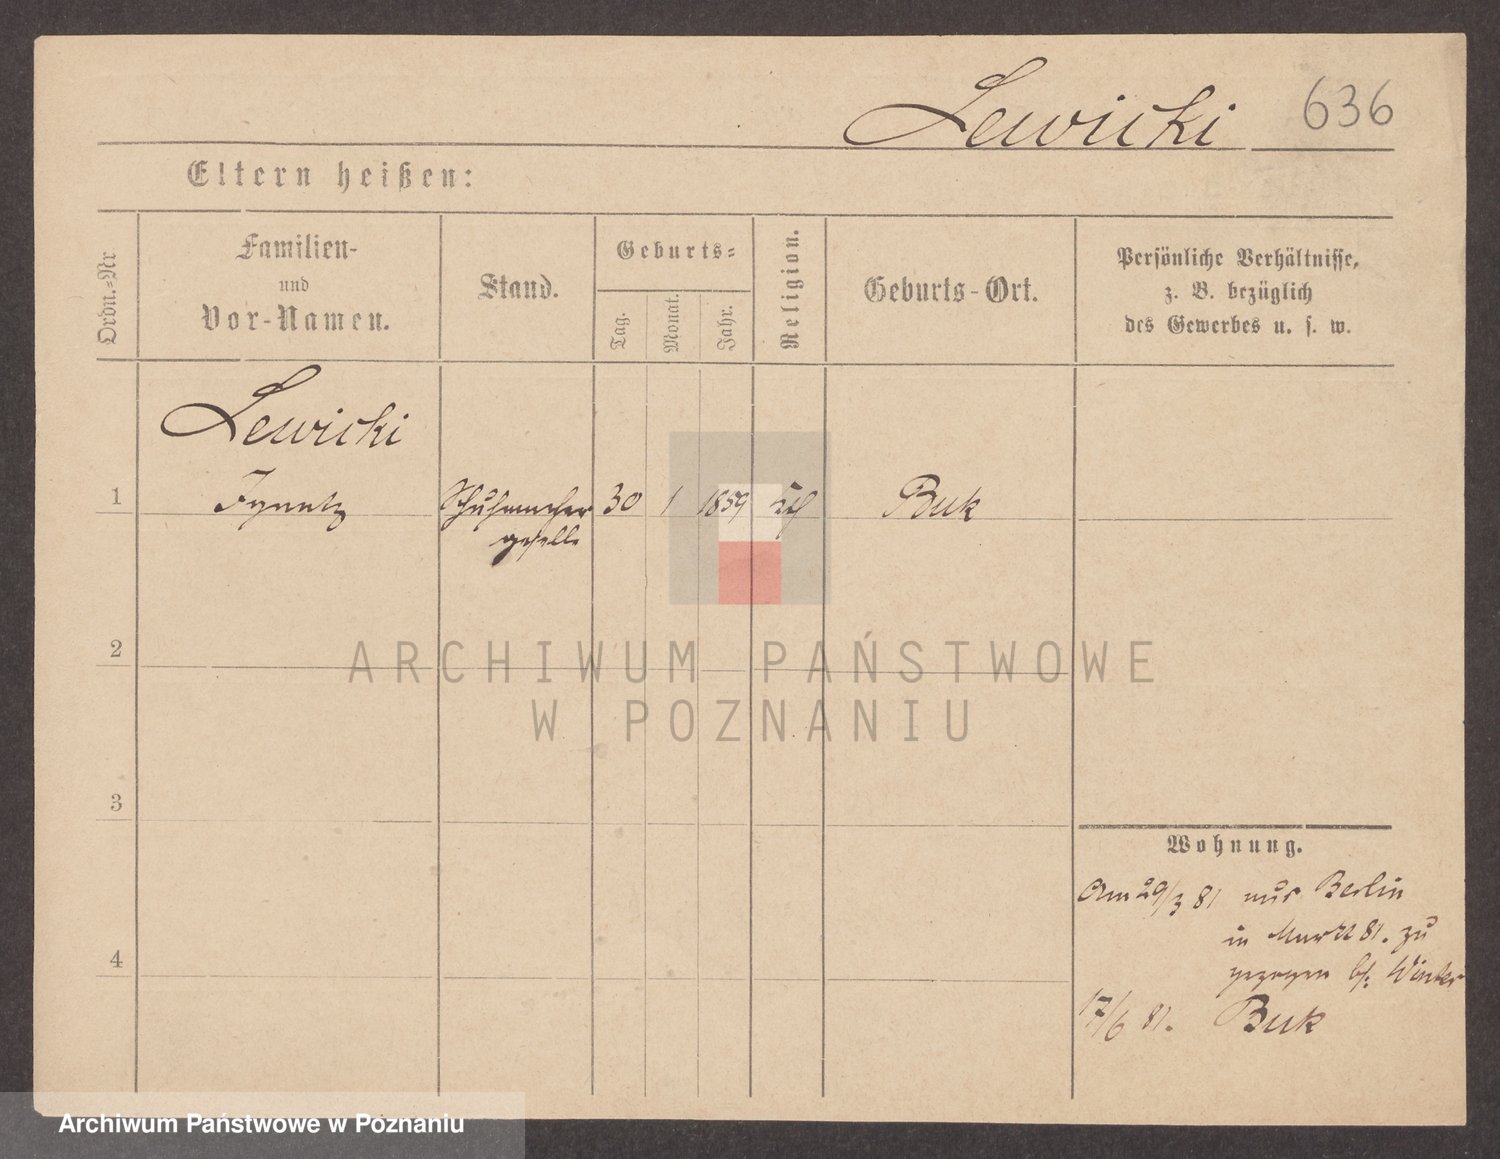 Lewicki 636
Eltern heißen:
Ordn.-Nr
Familien-
und
Vor-Namen.
Stand.
Geburts-
Tag.
Monat.
Jahr.
Religion.
Geburts-Ort.
Persönliche Verhältnisse,
z. B. bezüglich
des Gewerbes u. s. w.
Lewicki
1 Ignatz Schuhmacher 30 1 1859 Buk
geselle
ARCHIWUM PAŃSTWOWE
W POZNANIU
2
3
4
Wohnung.
Am 29/3 81 aus Berlin
in Markt 81. zu
gezogen bei Winter
17/6 81. Buk
Archiwum Państwowe w Poznaniu